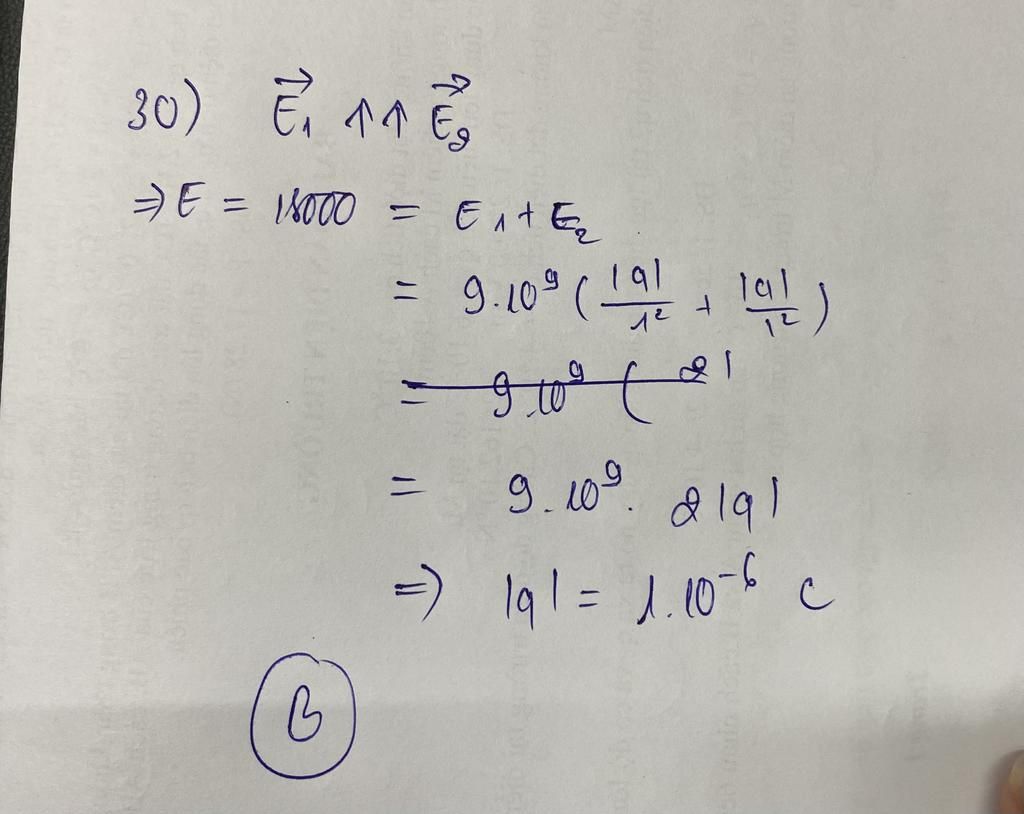 30) E₁ ↑↑ E₂
⇒ E = 18000 = E₁ + E₂
= 9.10⁹ ( |q|/1² + |q|/1² )
= 9.10⁹ ( 2|
= 9.10⁹. 2|q|
⇒ |q| = 1.10⁻⁶ C
B